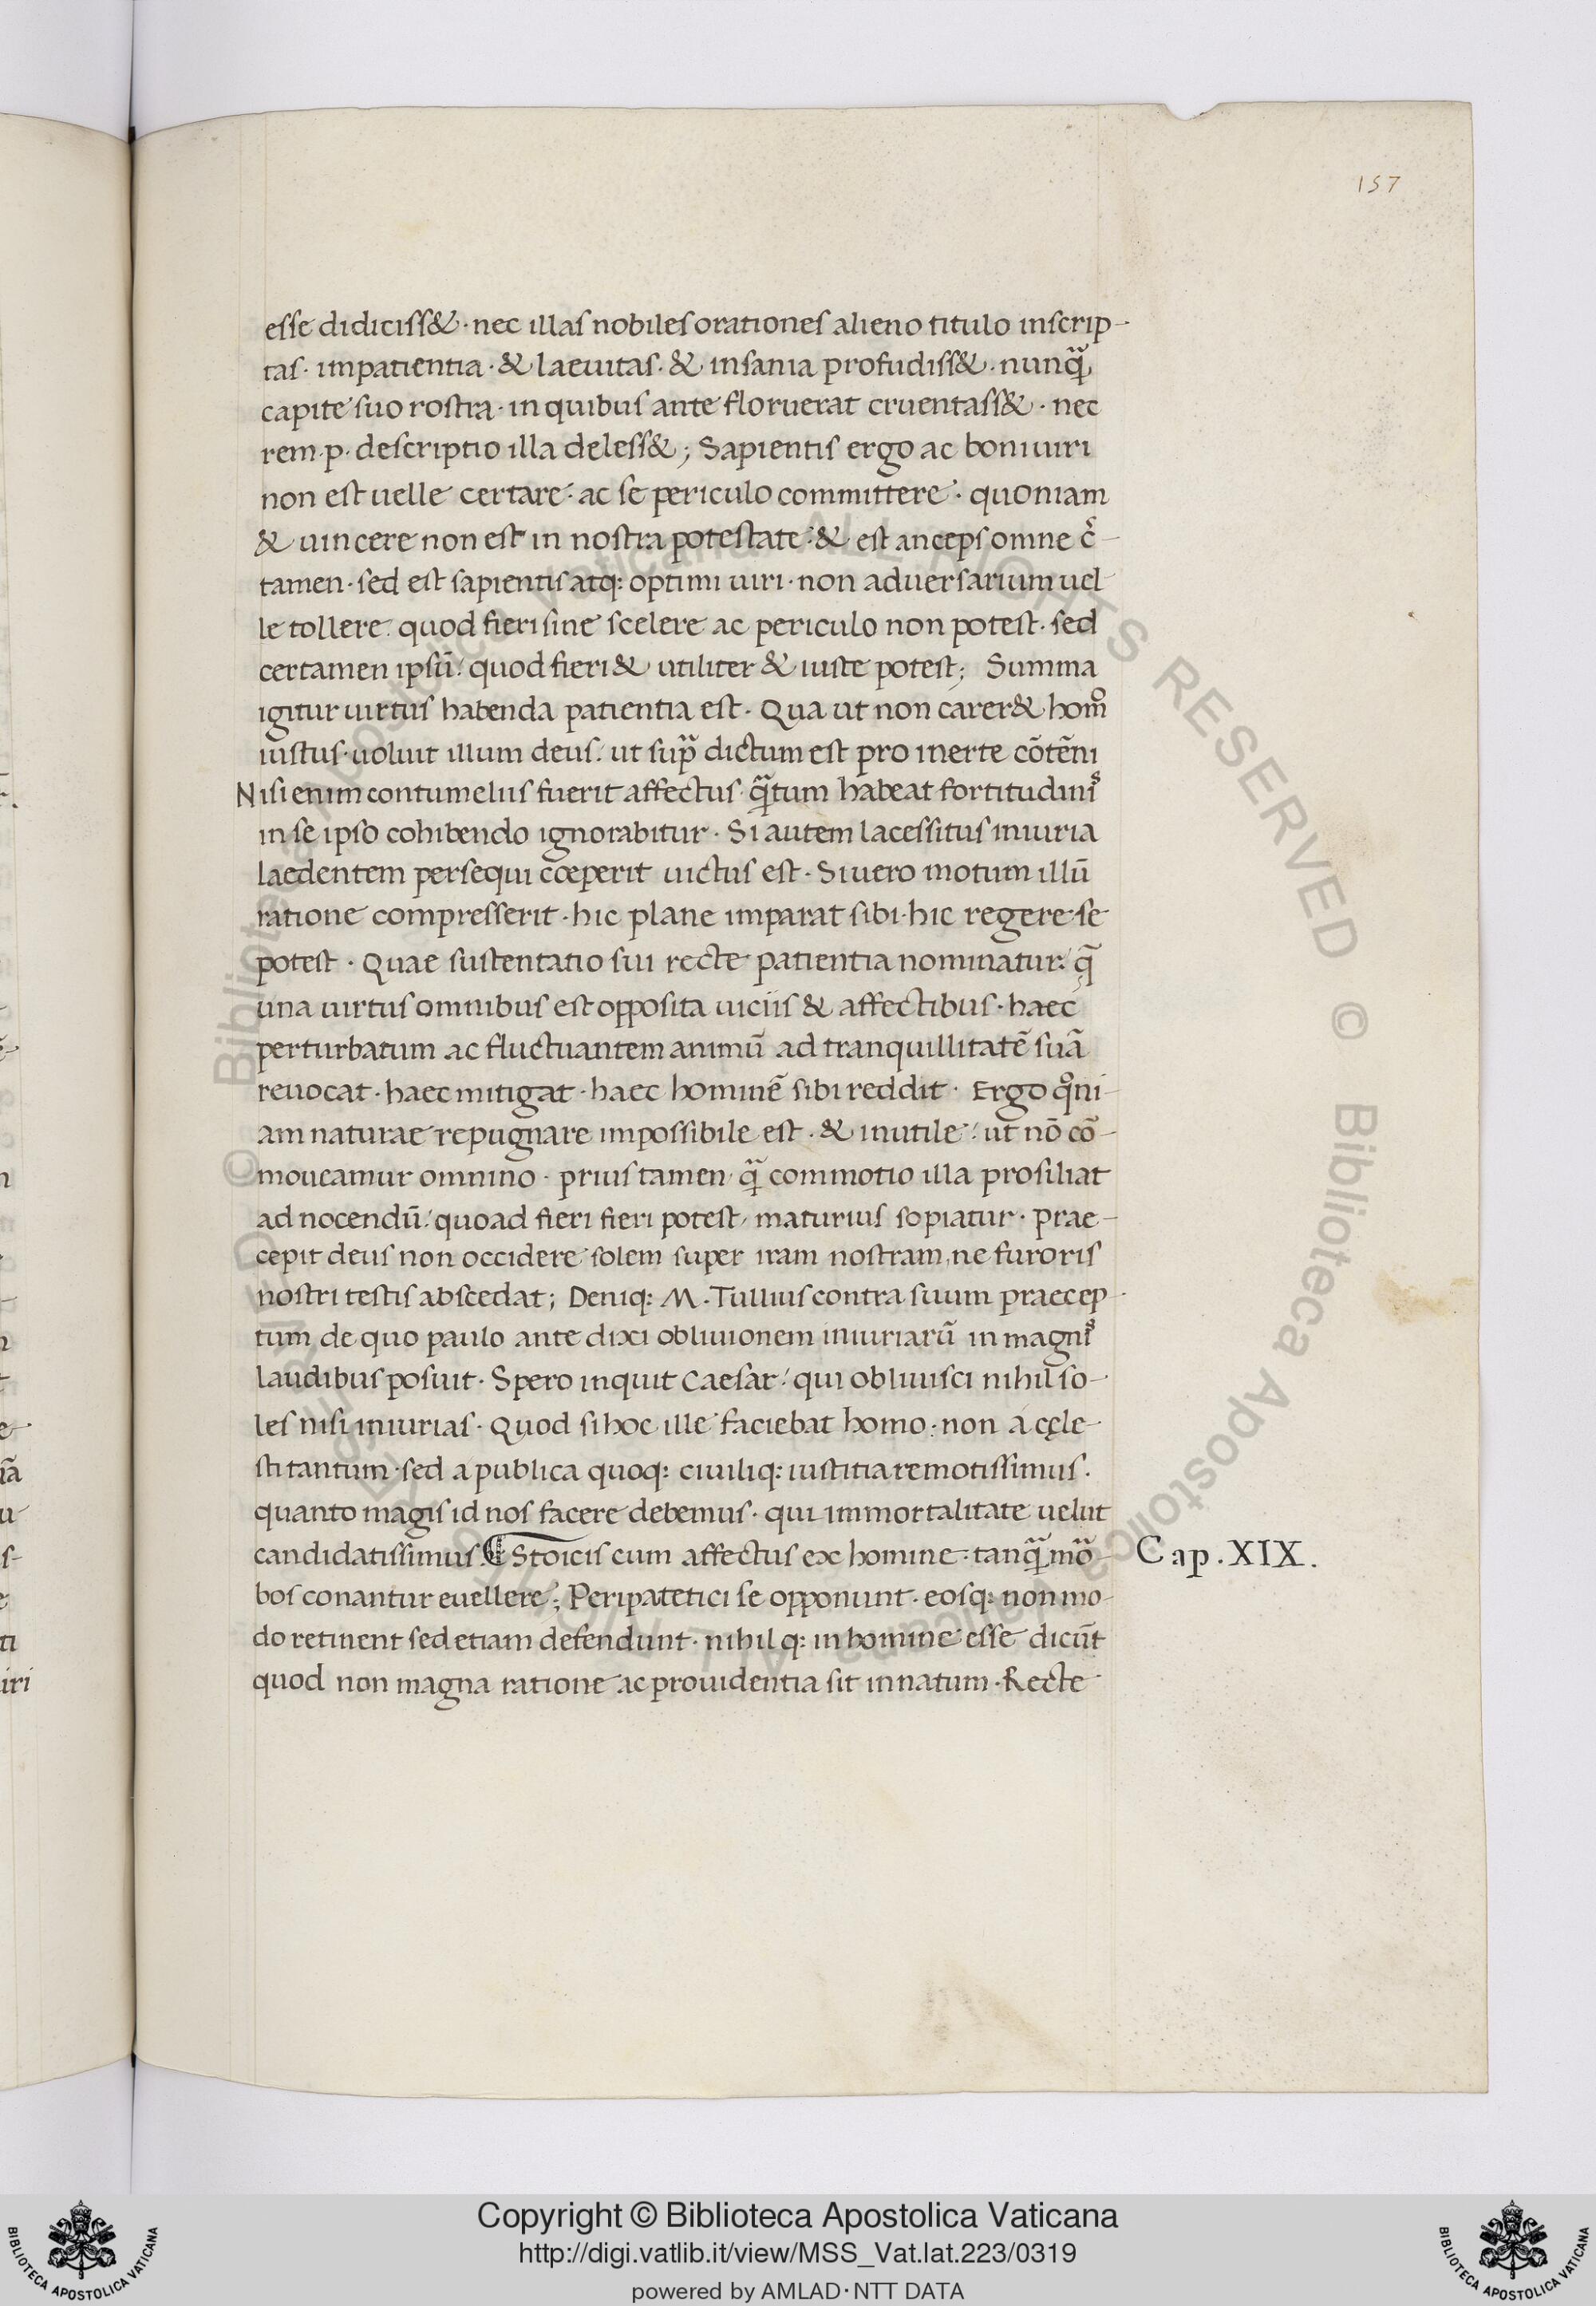 157
esse didiciss&· nec illas nobiles orationes alieno titulo inscrip-
tas· impatientia· & laeuitas· & insania profudiss&· nunq̃
capite suo rostra· in quibus ante floruerat cruentass&· nec
rem·p· descriptio illa deless&; Sapientis ergo ac boni uiri
non est uelle certare: ac se periculo committere· quoniam
& uincere non est in nostra potestate: & est anceps omne c̃-
tamen· sed est sapientis atq: optimi uiri· non aduersarium uel-
le tollere: quod fieri sine scelere ac periculo non potest· sed
certamen ipsũ: quod fieri & utiliter & iuste potest; Summa
igitur uirtus habenda patientia est· Qua ut non carer& homº
iustus· uoluit illum deus: ut sup̃ dictum est pro inerte cõtẽni
Nisi enim contumeliis fuerit affectus· q̃tum habeat fortitudiniˢ
in se ipso cohibendo ignorabitur· Si autem lacessitus iniuria
laedentem persequi cœperit uictus est· Si uero motum illũ
ratione compresserit· hic plane imparat sibi· hic regere se
potest· Quae sustentatio sui recte patientia nominatur: q̃
una uirtus omnibus est opposita uiciis & affectibus· haec
perturbatum ac fluctuantem animũ ad tranquillitatẽ suã
reuocat· haec mitigat· haec hominẽ sibi reddit· Ergo qºni-
am naturae repugnare impossibile est· & inutile: ut nõ cõ-
moueamur omnino· prius tamen q̃ commotio illa prosiliat
ad nocendũ: quoad fieri fieri potest, maturius sopiatur· Prae-
cepit deus non occidere solem super iram nostram, ne furoris
nostri testis abscedat; Deniq: M·Tullius contra suum praecep-
tum de quo paulo ante dixi obliuionem iniuriarũ in magniˢ
laudibus posuit· Spero inquit Caesar: qui obliuisci nihil so-
les nisi iniurias· Quod si hoc ille faciebat homo: non a cęle-
sti tantum· sed a publica quoq: ciuiliq: iustitia remotissimus·
quanto magis id nos facere debemus· qui immortalitate uelut
candidatissimus ¶ Stoicis cum affectus ex homine: tanq̃ mõ-
Cap.XIX.
bos conantur euellere; Peripatetici se opponunt· eosq: non mo-
do retinent sed etiam defendunt· nihilq: in homine esse dicũt
quod non magna ratione ac prouidentia sit innatum· Recte
© Biblioteca Apostolica Vaticana ALL RIGHTS RESERVED © Biblioteca Apostolica Vaticana ALL RIGHTS RESERVED
Copyright © Biblioteca Apostolica Vaticana
http://digi.vatlib.it/view/MSS_Vat.lat.223/0319
powered by AMLAD·NTT DATA
BIBLIOTECA APOSTOLICA VATICANA
BIBLIOTECA APOSTOLICA VATICANA